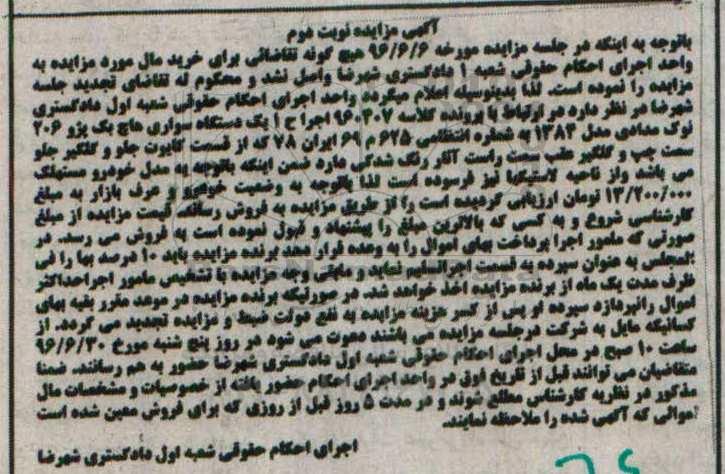 آگهی مزایده نوبت دوم
باتوجه به اینکه در جلسه مزایده مورخه ۹۶/۶/۶ هیچ گونه تقاضائی برای خرید مال مورد مزایده به
واحد اجرای احکام حقوقی شعبه ۱ دادگستری شهرضا واصل نشد و محکوم له تقاضای تجدید جلسه
مزایده را نموده است. لذا بدینوسیله اعلام میگردد واحد اجرای احکام حقوقی شعبه اول دادگستری
شهرضا در نظر دارد در ارتباط با پرونده کلاسه ۹۶۰۳۰۷ اجرا ح ۱ یک دستگاه سواری هاچ بک پژو ۲۰۶
نوک مدادی مدل ۱۳۸۳ به شماره انتظامی ۶۲۵ م ۶۱ ایران ۷۸ که از قسمت کاپوت جلو و گلگیر جلو
سمت چپ و گلگیر عقب سمت راست آثار رنگ شدگی دارد ضمن اینکه باتوجه به مدل خودرو مستهلک
می باشد واز ناحیه لاستیکها نیز فرسوده است لذا باتوجه به وضعیت خودرو و عرف بازار به مبلغ
۱۳/۲۰۰/۰۰۰ تومان ارزیابی گردیده است را از طریق مزایده به فروش رساند. قیمت مزایده از مبلغ
کارشناسی شروع و به کسی که بالاترین مبلغ را پیشنهاد و قبول نموده است به فروش می رسد. در
صورتی که مامور اجرا پرداخت بهای اموال را به وعده قرار دهد برنده مزایده باید ۱۰ درصد بها را فی
المجلس به عنوان سپرده به قسمت اجراتسلیم نماید و مابقی وجه مزایده با تشخیص مامور اجراحداکثر
ظرف مدت یک ماه از برنده مزایده اخذ خواهد شد. در صورتیکه برنده مزایده در موعد مقرر بقیه بهای
اموال رانپردازد سپرده او پس از کسر هزینه مزایده به نفع دولت ضبط و مزایده تجدید می گردد. از
کسانیکه مایل به شرکت درجلسه مزایده می باشند دعوت می شود در روز پنج شنبه مورخ ۹۶/۶/۳۰
ساعت ۱۰ صبح در محل اجرای احکام حقوقی شعبه اول دادگستری شهرضا حضور به هم رسانند. ضمنا
متقاضیان می توانند قبل از تاریخ فوق در واحد اجرای احکام حضور یافته از خصوصیات و مشخصات مال
مذکور در نظریه کارشناس مطلع شوند و در مدت ۵ روز قبل از روزی که برای فروش معین شده است
اموالی که آگهی شده را ملاحظه نمایند.
اجرای احکام حقوقی شعبه اول دادگستری شهرضا